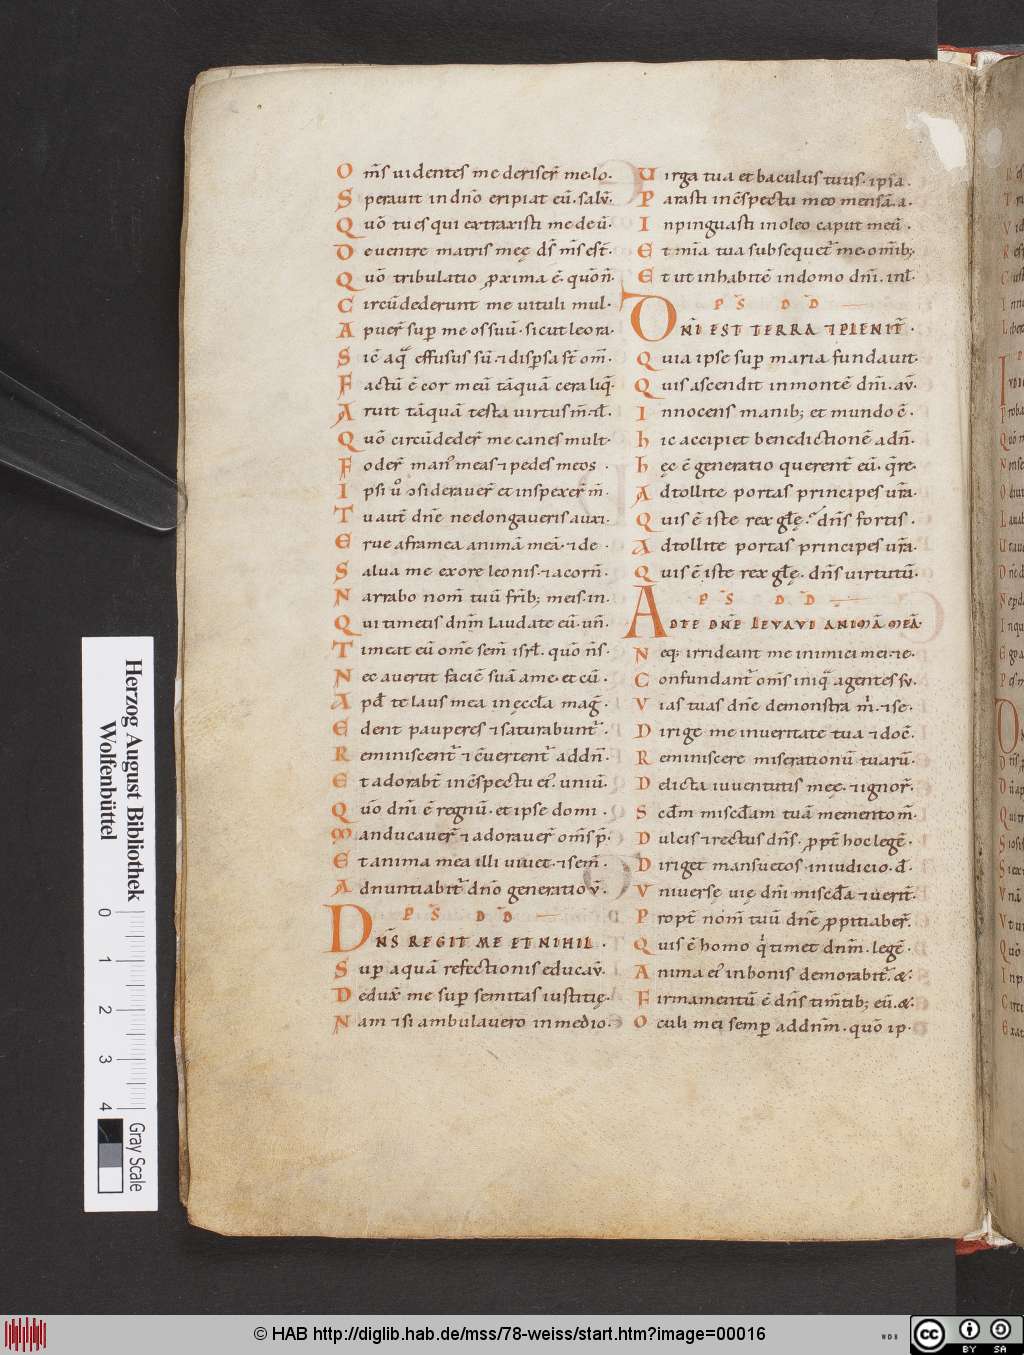 Om̄s uidentes me deriser̄ me·lo·
Sperauit in dn̄o eripiat eū·salv̄·
Quō tu es qui extraxisti me de ū·
De uentre matris meę ds̄ m̄s est̄·
Quō tribulatio ꝓxima ē·quōn̄·
Circūdederunt me uituli mul·
Apuer̄ suꝑ me os suū·sicut leo ra·
Sic̄ aq̄ effusus sū·⁊dispersa st̄ om̄·
Factū ē cor meū tāquā cera liq̄·
Aruit tāquā testa uirtus m̄·⁊l̄·
Quō circūdeder̄ me canes mult·
Foder̄ man᾽ meas ⁊pedes meos·
Ipsi ū ɔsiderauer̄ et inspexer̄ m̄·
Tu aut̄ dn̄e ne elongaueris auxi·
Erue a framea animā meā·⁊de·
Salua me ex ore leonis·⁊a corn̄·
Narrabo nom̄ tuū fr̄ib; meis·in·
Qui timetis dn̄m Laudate eū·un̄·
Timeat eū om̄e sem̄ isrl̄·quō n̄s·
Nec auertit faciē suā a me·et cū·
Apd̄ te laus mea in ęccl̄a mag̃·
Edent pauperes ⁊saturabunt᷑·
Reminiscent᷑ ⁊ɔ̄uertent᷑ ad dn̄·
Et adorabt̄ in ɔ̄spectu ei᾽·uniū·
Quō dn̄i ē regnū·et ipse domi·
Manducauer̄ ⁊adorauer̄ om̄s p̄·
Et anima mea illi uiuet·⁊sem̄·
Adnuntiabit᷑ dn̄o generatio v̄·
PS̄ DD
DNS̄ REGIT ME ET NIHIL·
Suꝑ aquā refectionis educav̄·
Dedux̄ me suꝑ semitas iustitię·
Nam ⁊si ambulauero in medio·
Uirga tua et baculus tuus·ipsa·
Parasti in ɔ̄spectu meo mensā·a·
Inpinguasti in oleo caput meū·
Et mīa tua subsequet᷑ me·om̄ib;·
Et ut inhabitē in domo dn̄i·inl̄·
PS̄ DD
DNI EST TERRA ⁊PLENIT̄·
Quia ipse suꝑ maria fundauit·
Quis ascendit in montē dn̄i·av̄·
Innocens manib; et mundo c̄·
hic accipiet benedictionē a dn̄·
hęc ē generatio querent̄ eū·q̄re·
Adtollite portas principes ur̄a·
Quis ē iste rex gl̄ę·dn̄s fortis·
Adtollite portas principes ur̄a·
Quis ē iste rex gl̄ę·dn̄s uirtutū·
PS̄ DD
AD TE DNĒ LEVAVI ANIMĀ MEĀ·
Neq; irrideant me inimici mei·⁊e·
Confundant᷑ om̄s iniq̄ agentes sv·
Vias tuas dn̄e demonstra m̄·⁊se·
Dirige me in ueritate tua ⁊doc̄·
Reminiscere miserationū tuarū·
Delicta iuuentutis meę·⁊ignor̄·
Scd̄m miscd̄am tuā memento m̄·
Dulcis ⁊rectus dn̄s·ꝓpt̄ hoc legē·
Diriget mansuetos in iudicio·d̄·
Vniuerse uię dn̄i miscd̄a ⁊uerit̄·
Propt̄ nom̄ tuū dn̄e ꝓpitiaber̄·
Quis ē homo q̄ timet dn̄m·legē·
Anima ei᾽ in bonis demorabit᷑·&·
Firmamentū ē dn̄s tim̄tib; eū·&·
Oculi mei semꝑ ad dn̄m·quō ip·
Herzog August Bibliothek
Wolfenbüttel
0 1 2 3 4
Gray Scale
© HAB http://diglib.hab.de/mss/78-weiss/start.htm?image=00016
WDB
cc BY SA